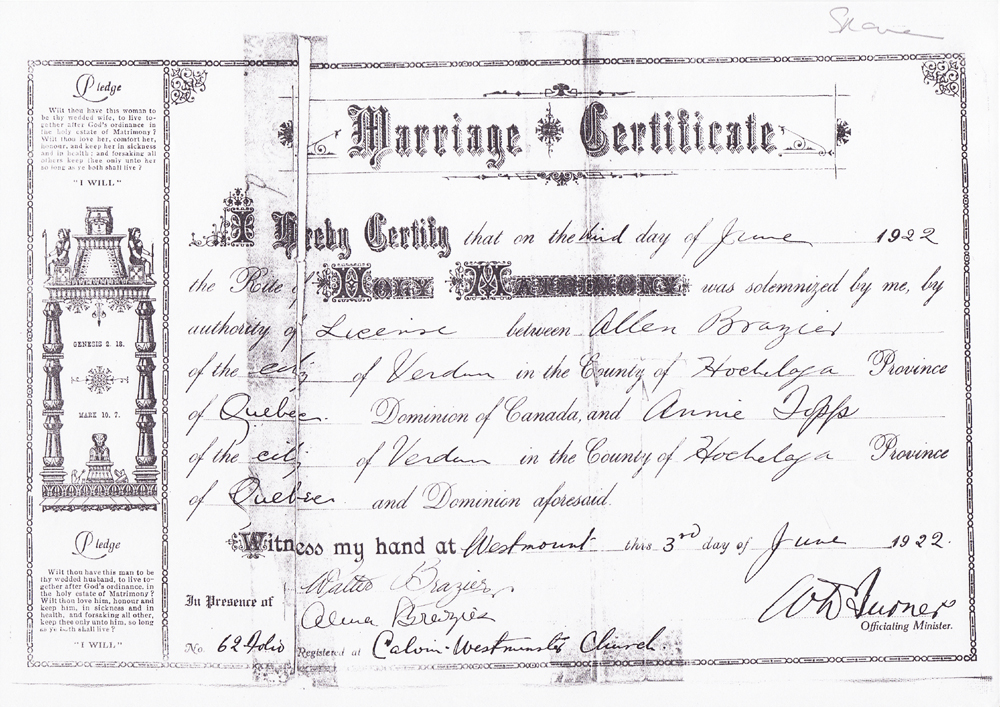 Pledge
Wilt thou have this woman to
be thy wedded wife, to live to-
gether after God's ordinance in
the holy estate of Matrimony?
Wilt thou love her, comfort her,
honour, and keep her in sickness
and in health; and forsaking all
others keep thee only unto her
so long as ye both shall live?
"I WILL"
GENESIS 2. 18.
MARK 10. 7.
Pledge
Wilt thou have this man to be
thy wedded husband, to live to-
gether after God's ordinance, in
the holy estate of Matrimony?
Wilt thou love him, honour and
keep him, in sickness and in
health, and forsaking all other,
keep thee only unto him, so long
as ye both shall live?
"I WILL"
Marriage Certificate
I Hereby Certify that on the third day of June 1922
the Rite of Holy Matrimony was solemnized by me, by
authority of License between Allen Brazier
of the city of Verdun in the County of Hochelaga Province
of Quebec. Dominion of Canada, and Annie
of the city of Verdun in the County of Hochelaga Province
of Quebec and Dominion aforesaid.
Witness my hand at Westmount this 3rd day of June 1922.
In Presence of Walter Brazier
Alma Brazier
Turner
Officiating Minister.
No. 62 Folio Registered at Calvin-Westminster Church.